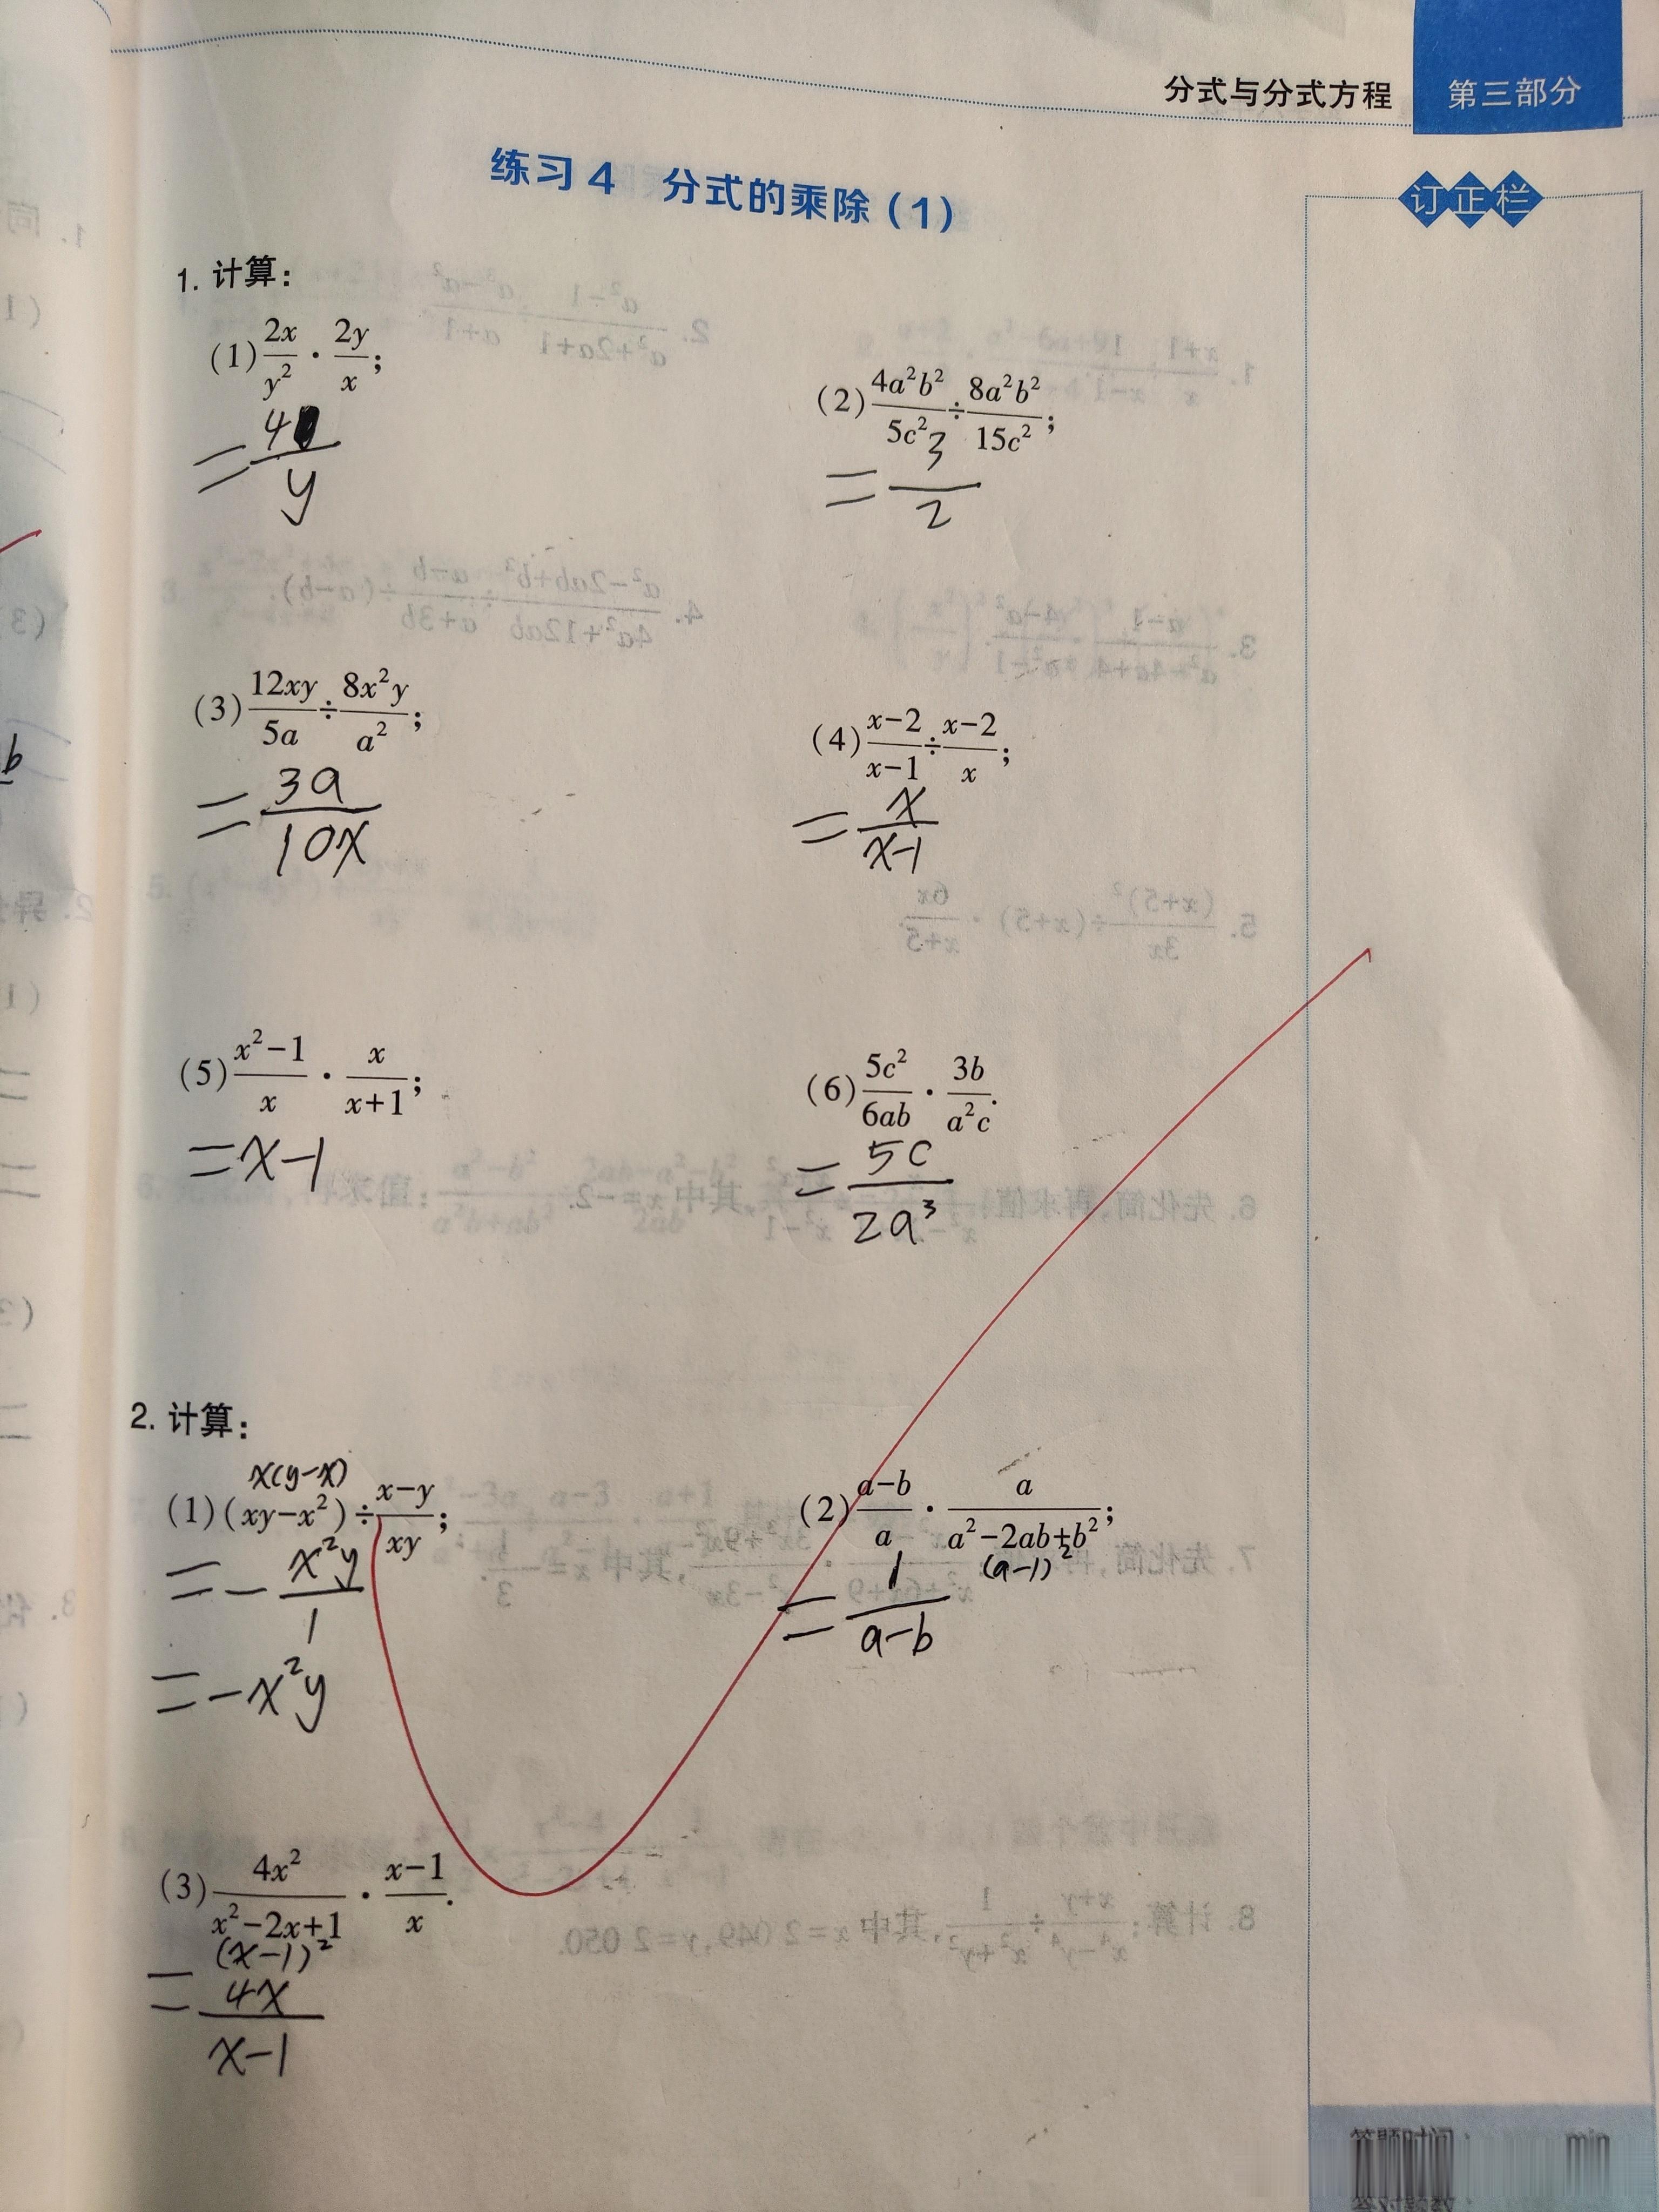 分式与分式方程 第三部分
练习4 分式的乘除(1)
订正栏
1. 计算:
(1) 2x/y² · 2y/x;
= 4/y
(2) 4a²b²/5c² ÷ 8a²b²/15c²;
= 3/2
(3) 12xy/5a ÷ 8x²y/a²;
= 3a/10x
(4) x-2/x-1 ÷ x-2/x;
= x/x-1
(5) x²-1/x · x/x+1;
= x-1
(6) 5c²/6ab · 3b/a²c.
= 5c/2a³
2. 计算:
x(y-x)
(1) (xy-x²) ÷ x-y/xy;
= - x²y/1
= -x²y
(2) a-b/a · a/a²-2ab+b²;
(a-1)²
= 1/a-b
(3) 4x²/x²-2x+1 · x-1/x.
(x-1)²
= 4x/x-1
答题时间: min